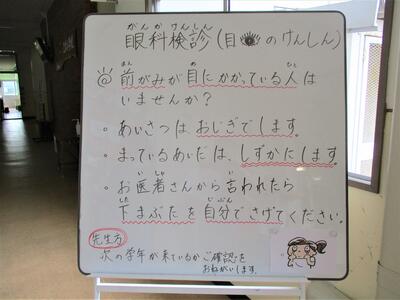 眼科検診(目のけんしん)
◎前がみが目にかかっている人は
いませんか?
・あいさつは、おじぎでします。
・まっているあいだは、しずかにします。
・お医者さんから言われたら
下まぶたを自分でさげてください。
先生方
次の学年が来ているかご確認を
おねがいします。